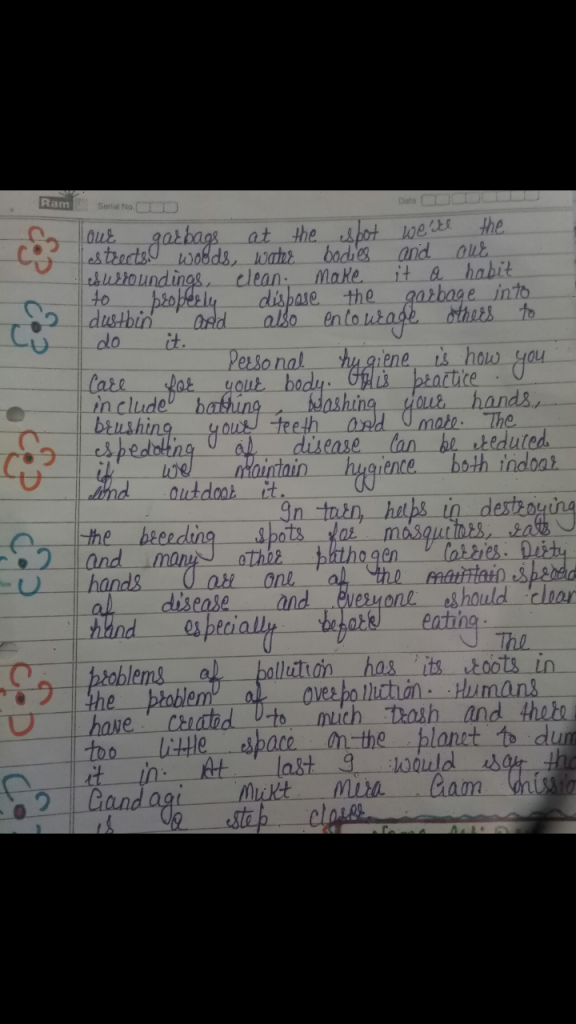 Ram
Serial No.
Date
our garbags at the spot we're the
streets woods, water bodies and our
surroundings, clean. Make it a habit
to properly dispose the garbage into
dustbin and also encourage others to
do it.
Personal hygiene is how you
Care for your body. This practice
include bathing, washing your hands,
brushing your teeth and more. The
of disease can be reduced
if we maintain hygience both indoor
and outdoor it.
In turn, helps in destroying
the breeding spots for mosquitors, rats
and many other pathogen Carries. Dirty
hands are one of the maintain spread
of disease and everyone should clean
hand especially before eating.
The
problems of pollution has its roots in
the problem of overpollution. Humans
have created to much trash and there
too little space on the planet to dum
it in. At last I would say tha
Gandagi Mukt Mera Gaon missio
is a step closer